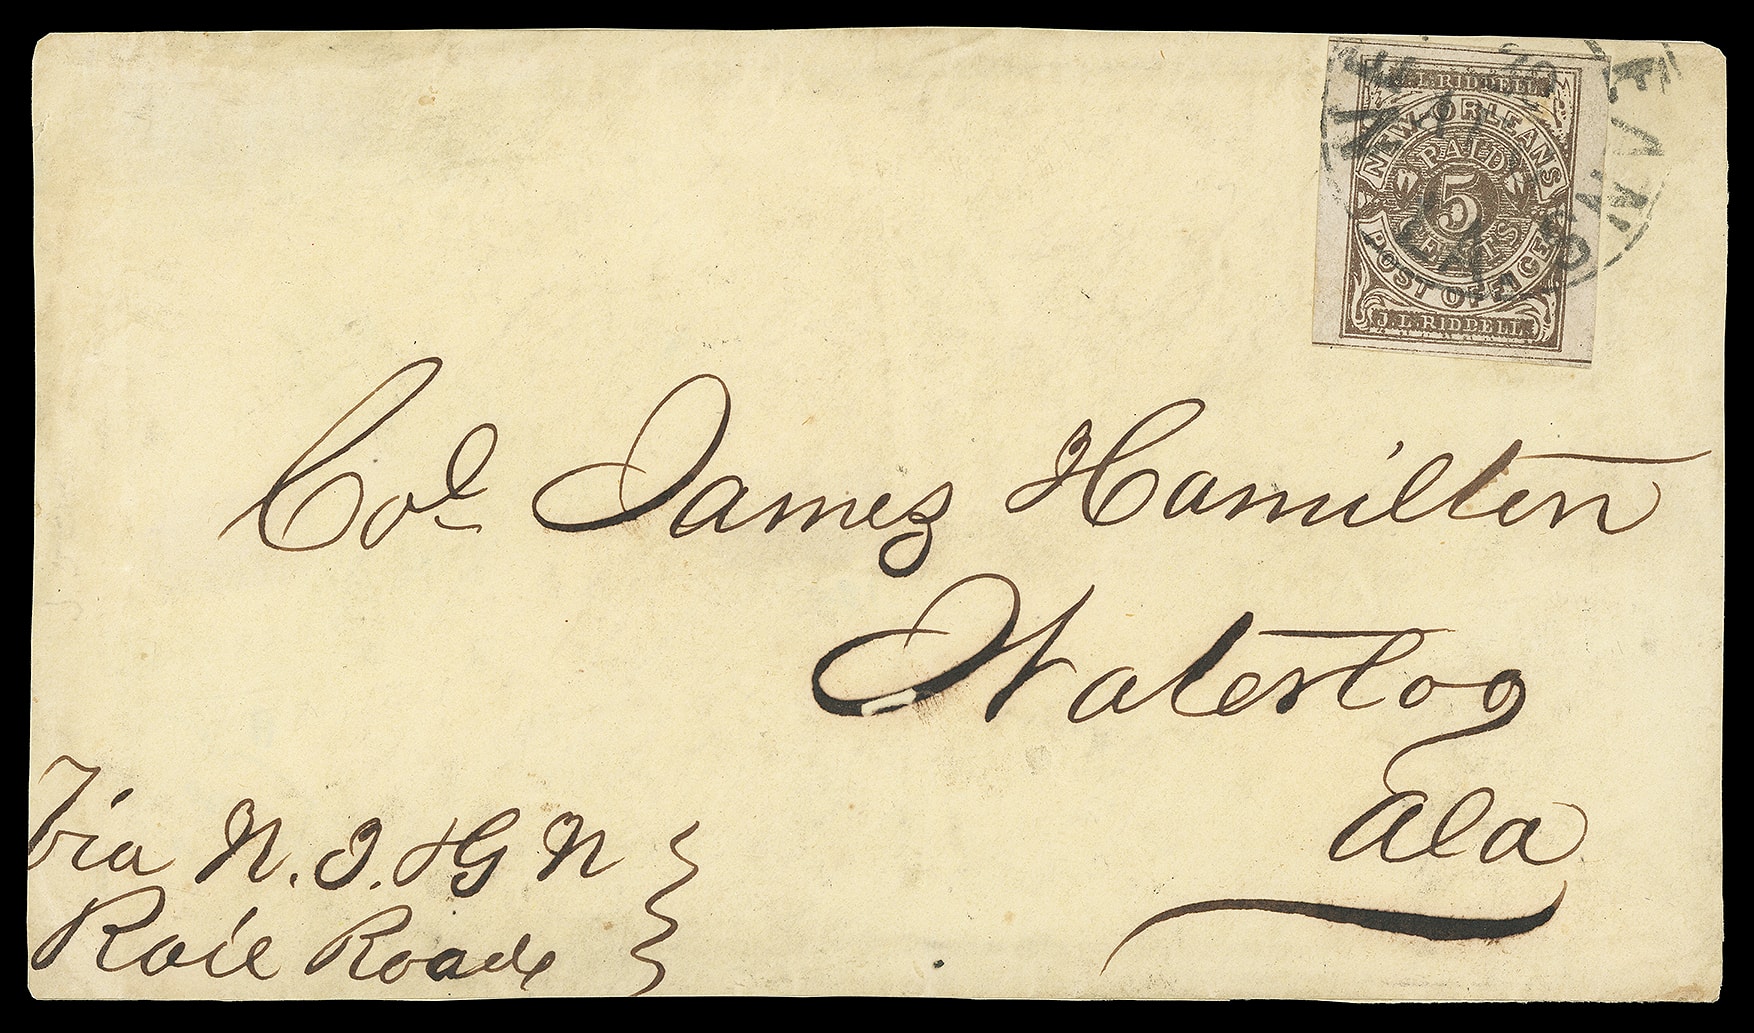 J.L.RIDDELL
NEW-ORLEANS
PAID
5
CENTS
POST OFFICE
J.L.RIDDELL
Col James Hamilton
Waterloo
Ala
Via N. J. & G N
Rail Roads